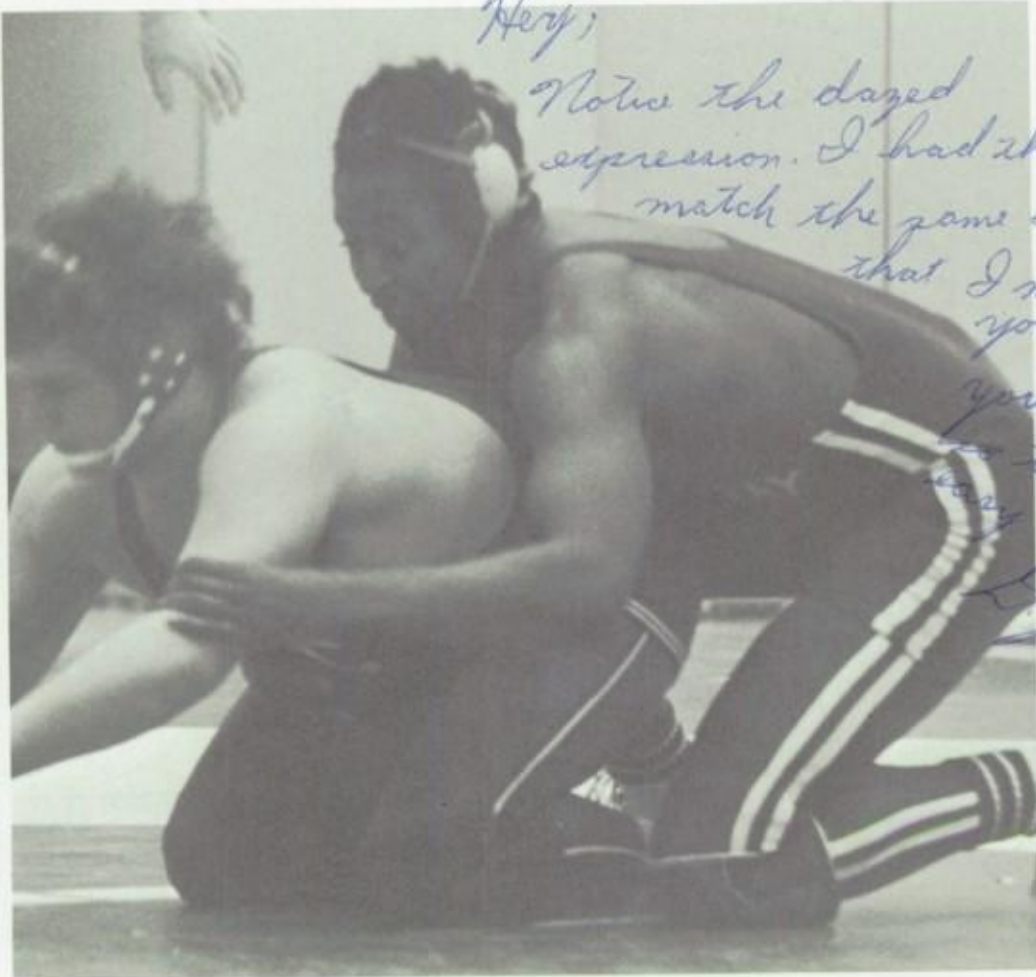 Hey;
Notice the dazed
expression. I had th
match the same
that I
yo
you

easy